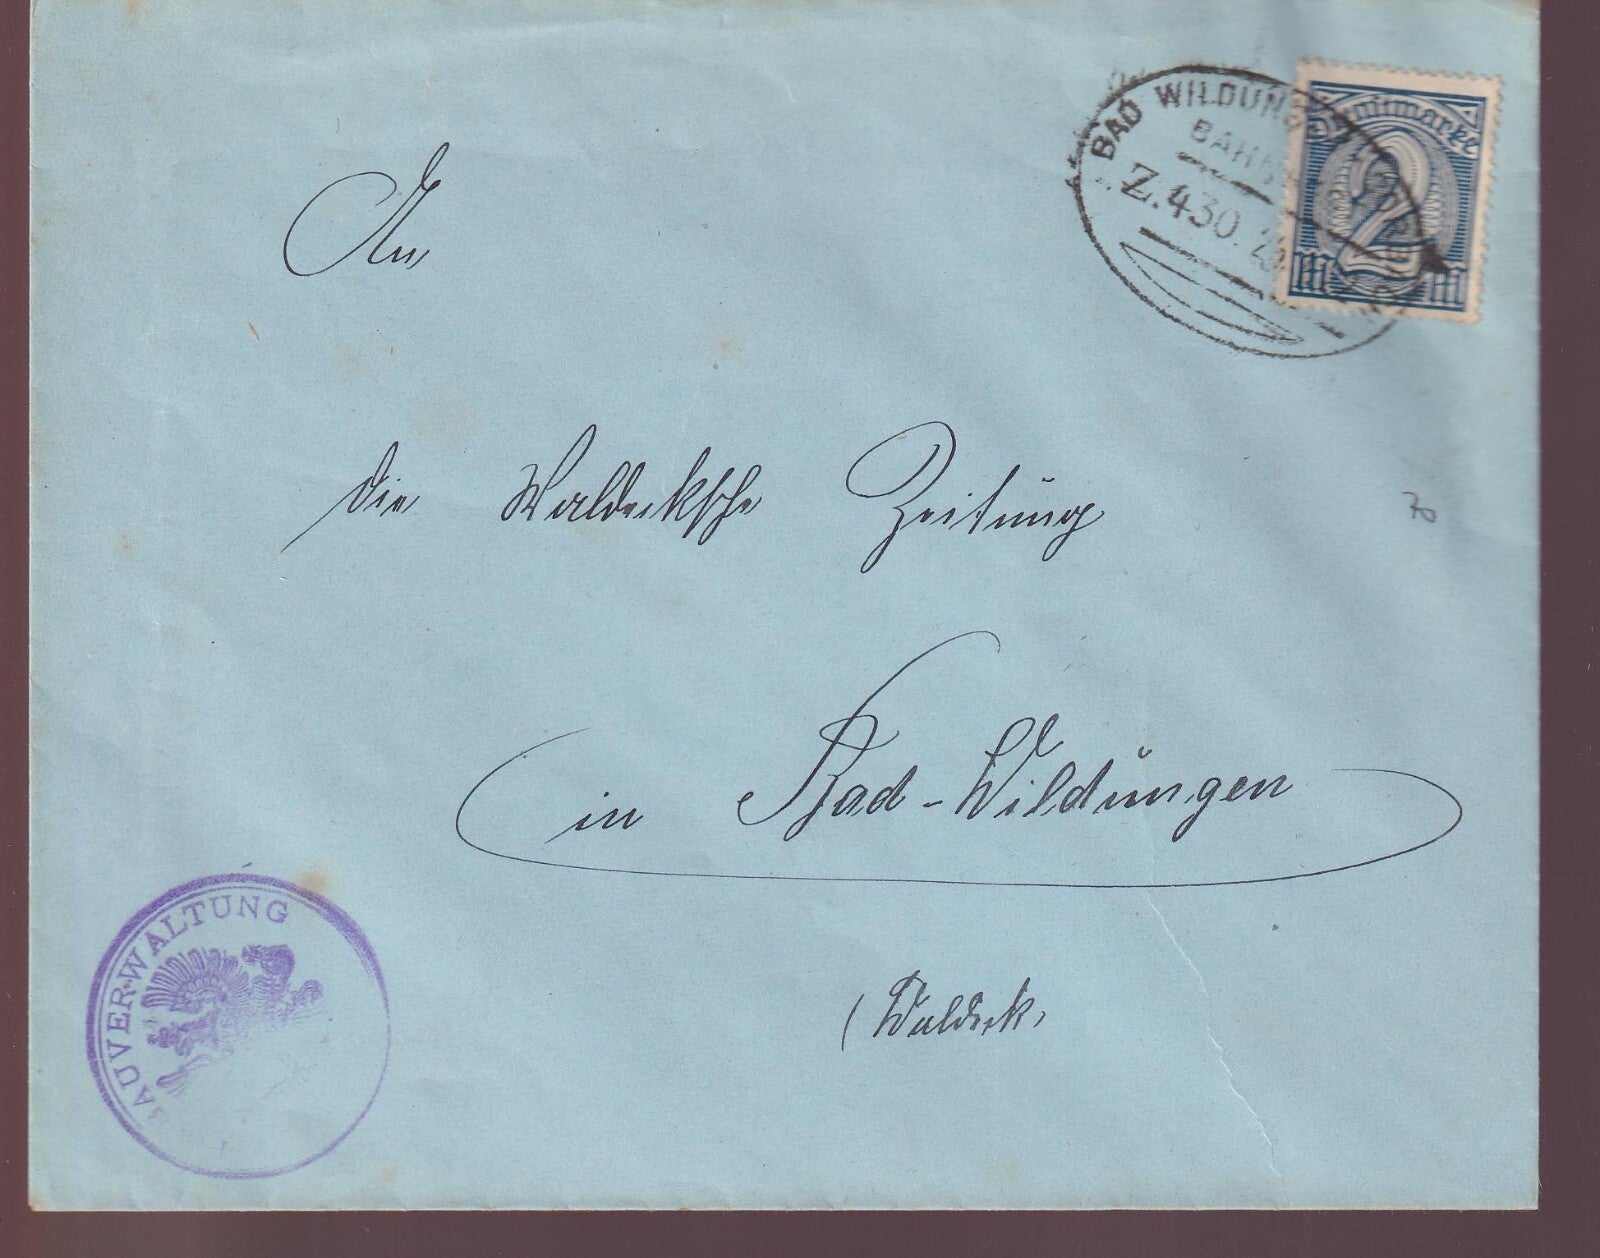 BAD WILDUNG
BAH
Z.430.2
Dienstmarke
2
M M
An
die Waldecksche Zeitung
70
in Bad-Wildungen
(Waldeck,
BAUVERWALTUNG